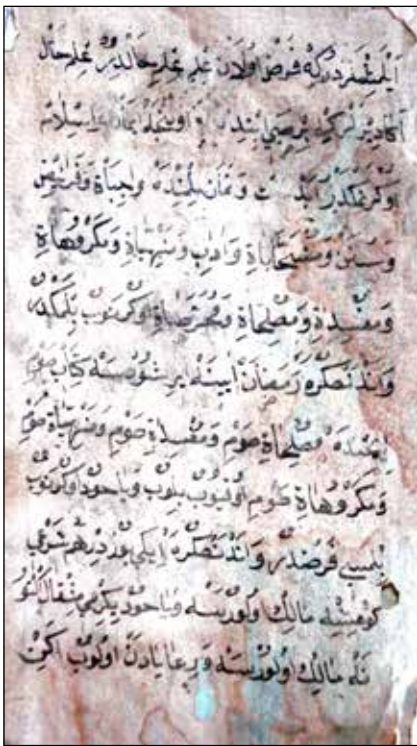 ايلمشلردركه فرض اولان علم علم حالدر علم حال
اكا ديرلركه بر صبي بنده اوننجله نماز و اسلام
اوكرنمكدر آبدست و نماز بلنده واجباة و فرايض
و سنن و مستحباة و ادب و منهياة و مكروهاة
و مفسدة و مصلحاة و محرصاة اوكرنوب بلمكدر
و اندنصكره رمضان آيينه ايرشورسه كتاب صوم
ايچنده مصلحاة صوم و مفسداة صوم و منهياة صوم
و مكروهاة صوم اوقيوب بلوب و ياخود اوكرنوب
بلمسي فرضدر و اندنصكره ايكي يوز درهم شرعي
كومشه مالك اولورسه و ياخود يكرمي مثقال التو
نه مالك اولورسه و رعايادن اولوب اكن